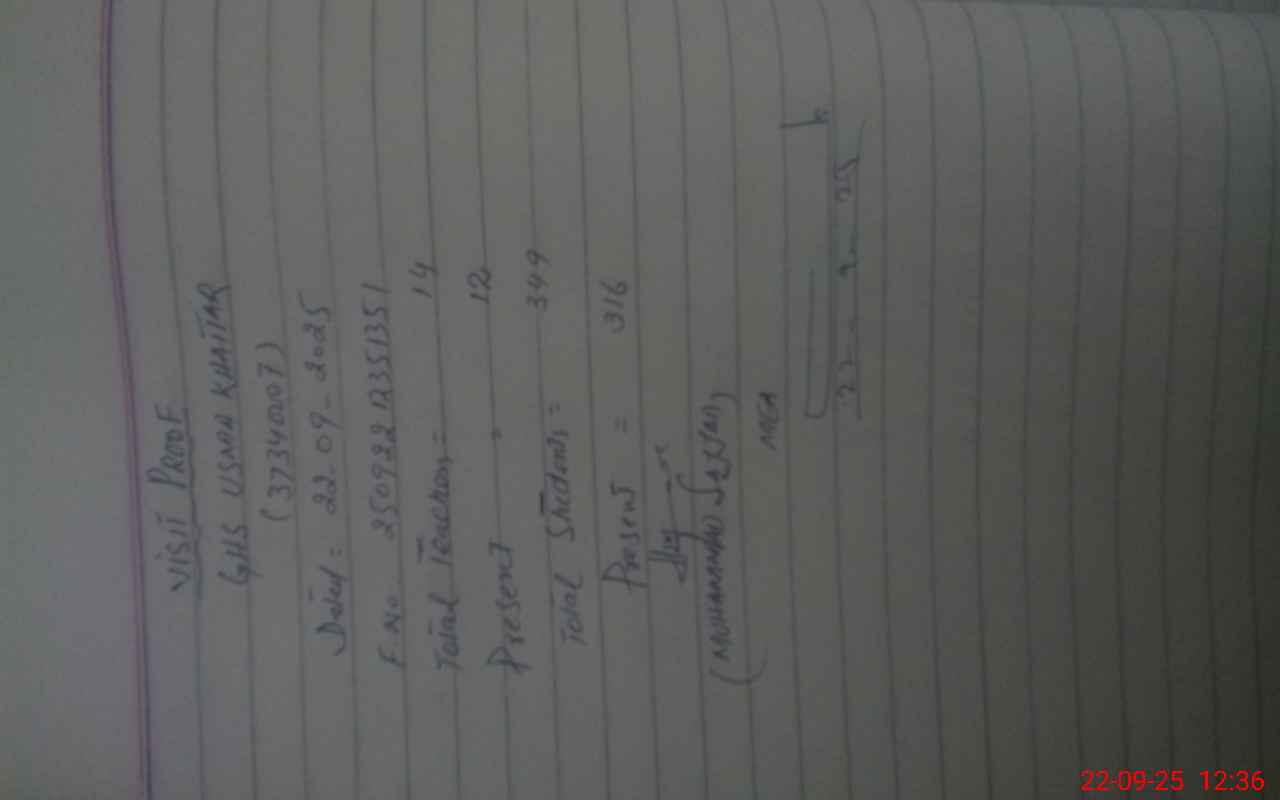 VISIT PROOF
GHS USMAN KHATTAR
(37340007)
Dated: 22-09-2025
F. No. 250922 12351351
Total Teachers = 14
Present = 12
Total Students = 349
Present = 316
(MUHAMMAD
MEA
22-9-25
22-09-25 12:36